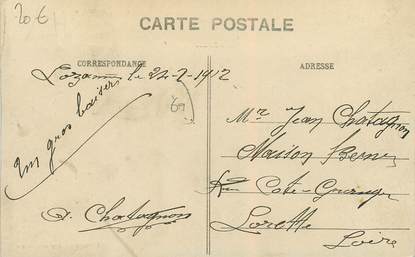 20 €
CARTE POSTALE
CORRESPONDANCE
ADRESSE
Lozanne le 24-2-1912
Un gros baiser
69
Mr Jean Chatagnon
Maison
Rue Côte-Granger
Lorette
Loire
Chatagnon